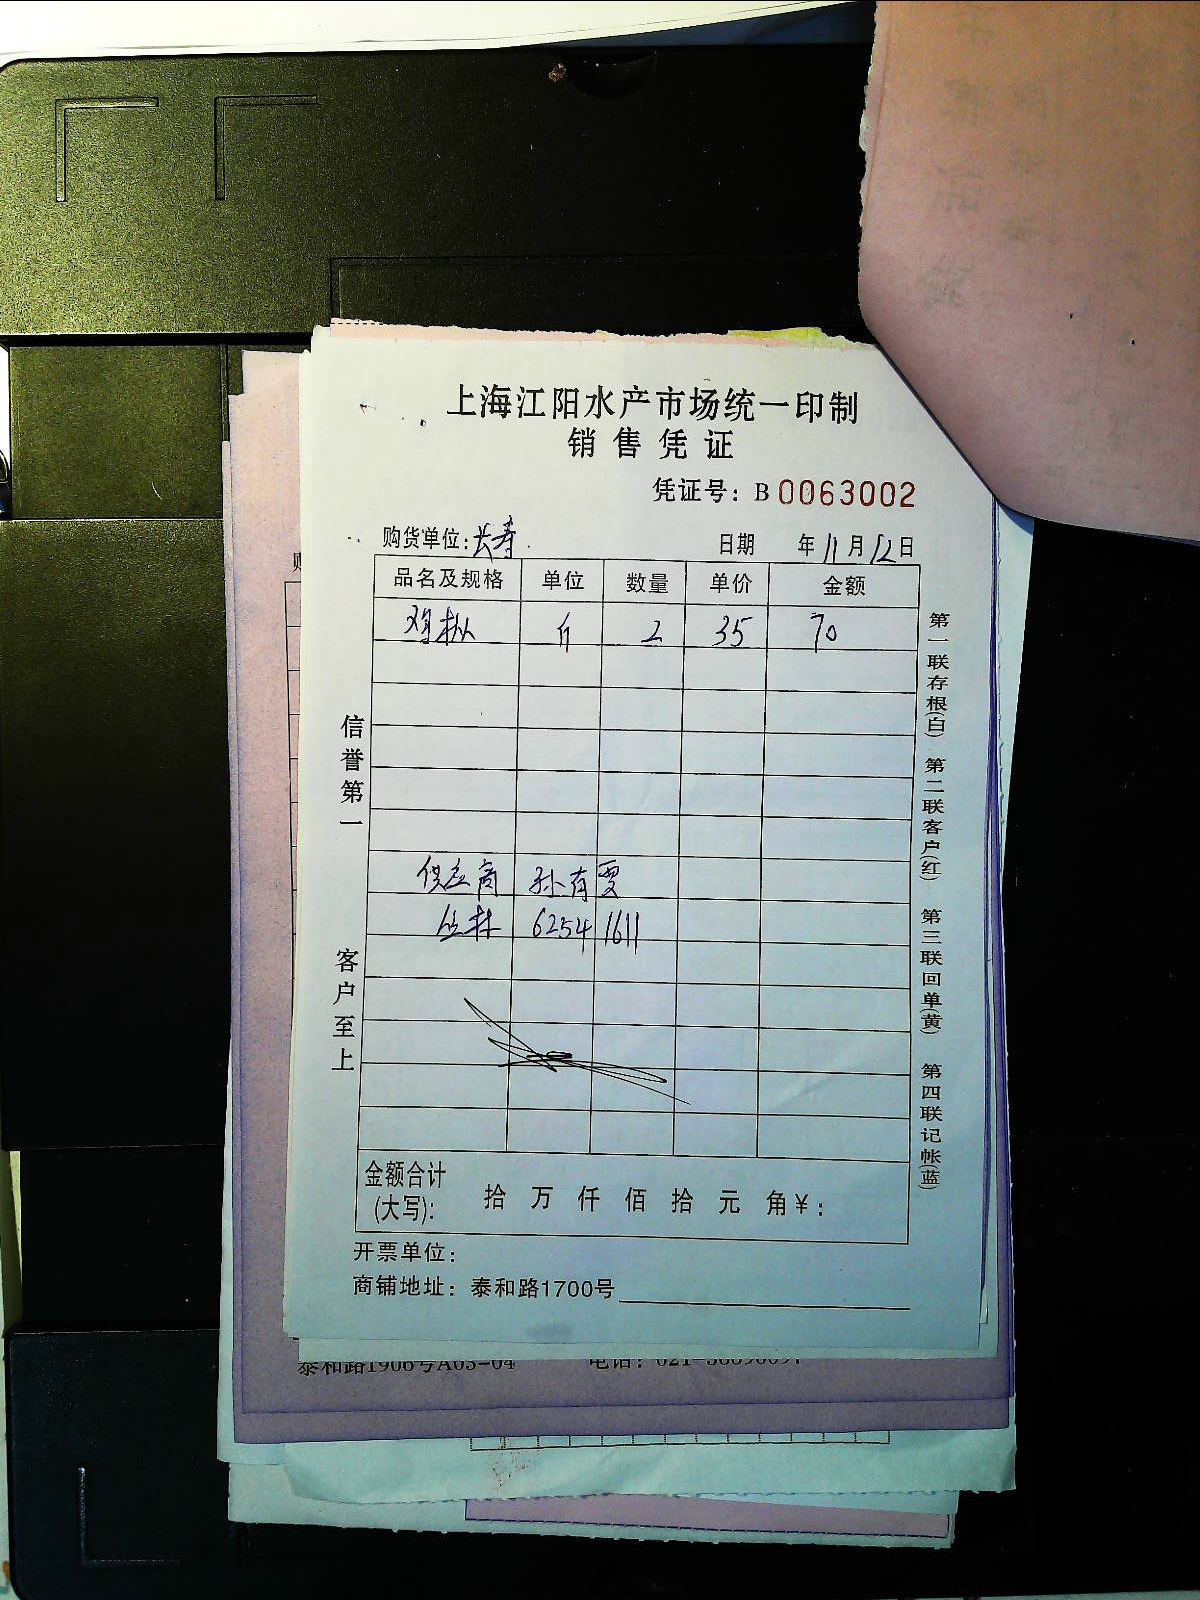 上海江阳水产市场统一印制
销售凭证
凭证号：B 0063002
购货单位：长寿 日期 年11月12日
品名及规格 单位 数量 单价 金额
鸡枞 斤 2 35 70
供应商 孙有
6254 1611
金额合计(大写)： 拾 万 仟 佰 拾 元 角 ￥：
开票单位：
商铺地址：泰和路1700号
信誉第一
客户至上
第一联存根(白) 第二联客户(红) 第三联回单(黄) 第四联记帐(蓝)
泰和路1906号A03-04 电话：021-